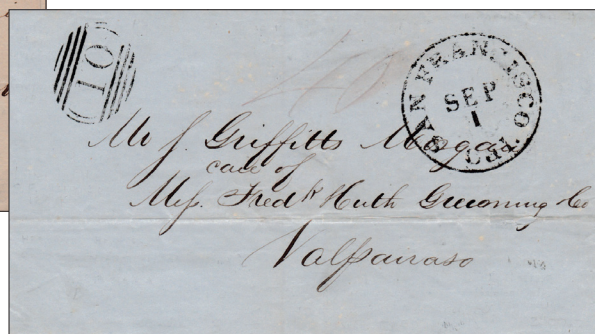 10
SAN FRANCISCO
SEP
1
Mr J. Griffitts Morgan
care of
Mess. Fredk Huth Gruning & Co
Valparaiso